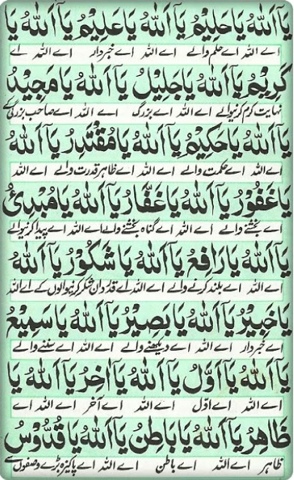 یَآ اَللّٰهُ یَا حَلِیْمُ یَآ اَللّٰهُ یَا عَلِیْمُ یَآ اَللّٰهُ یَا
اے اللہ اے حلم والے اے اللہ اے خبردار اے اللہ اے
کَرِیْمُ یَآ اَللّٰهُ یَا جَلِیْلُ یَآ اَللّٰهُ یَا مَجِیْدُ
نہایت کرم کرنیوالے اے اللہ اے بزرگ اے اللہ اے صاحب بزرگی کے
یَآ اَللّٰهُ یَا حَکِیْمُ یَآ اَللّٰهُ یَا مُقْتَدِرُ یَآ اَللّٰهُ
اے اللہ اے حکمت والے اے اللہ اے ظاہر قدرت والے اے اللہ
یَا غَفُوْرُ یَآ اَللّٰهُ یَا غَفَّارُ یَآ اَللّٰهُ یَا مُبْدِئُ
اے بخشنے والے اے اللہ اے گناہ بخشنے والے اے اللہ اے پیدا کرنیوالے
یَآ اَللّٰهُ یَا رَافِعُ یَآ اَللّٰهُ یَا شَکُوْرُ یَآ اَللّٰهُ
اے اللہ اے بلند کرنے والے اے اللہ اے قدردان شکر کرنیوالوں کے اے اللہ
یَا خَبِیْرُ یَآ اَللّٰهُ یَا بَصِیْرُ یَآ اَللّٰهُ یَا سَمِیْعُ
اے خبردار اے اللہ اے دیکھنے والے اے اللہ اے سننے والے
یَآ اَللّٰهُ یَا اَوَّلُ یَآ اَللّٰهُ یَا اٰخِرُ یَآ اَللّٰهُ یَا
اے اللہ اے اوّل اے اللہ اے آخر اے اللہ اے
ظَاهِرُ یَآ اَللّٰهُ یَا بَاطِنُ یَآ اَللّٰهُ یَا قُدُّوْسُ
ظاہر اے اللہ اے باطن اے اللہ اے پاکیزہ بڑے وصفوں سے